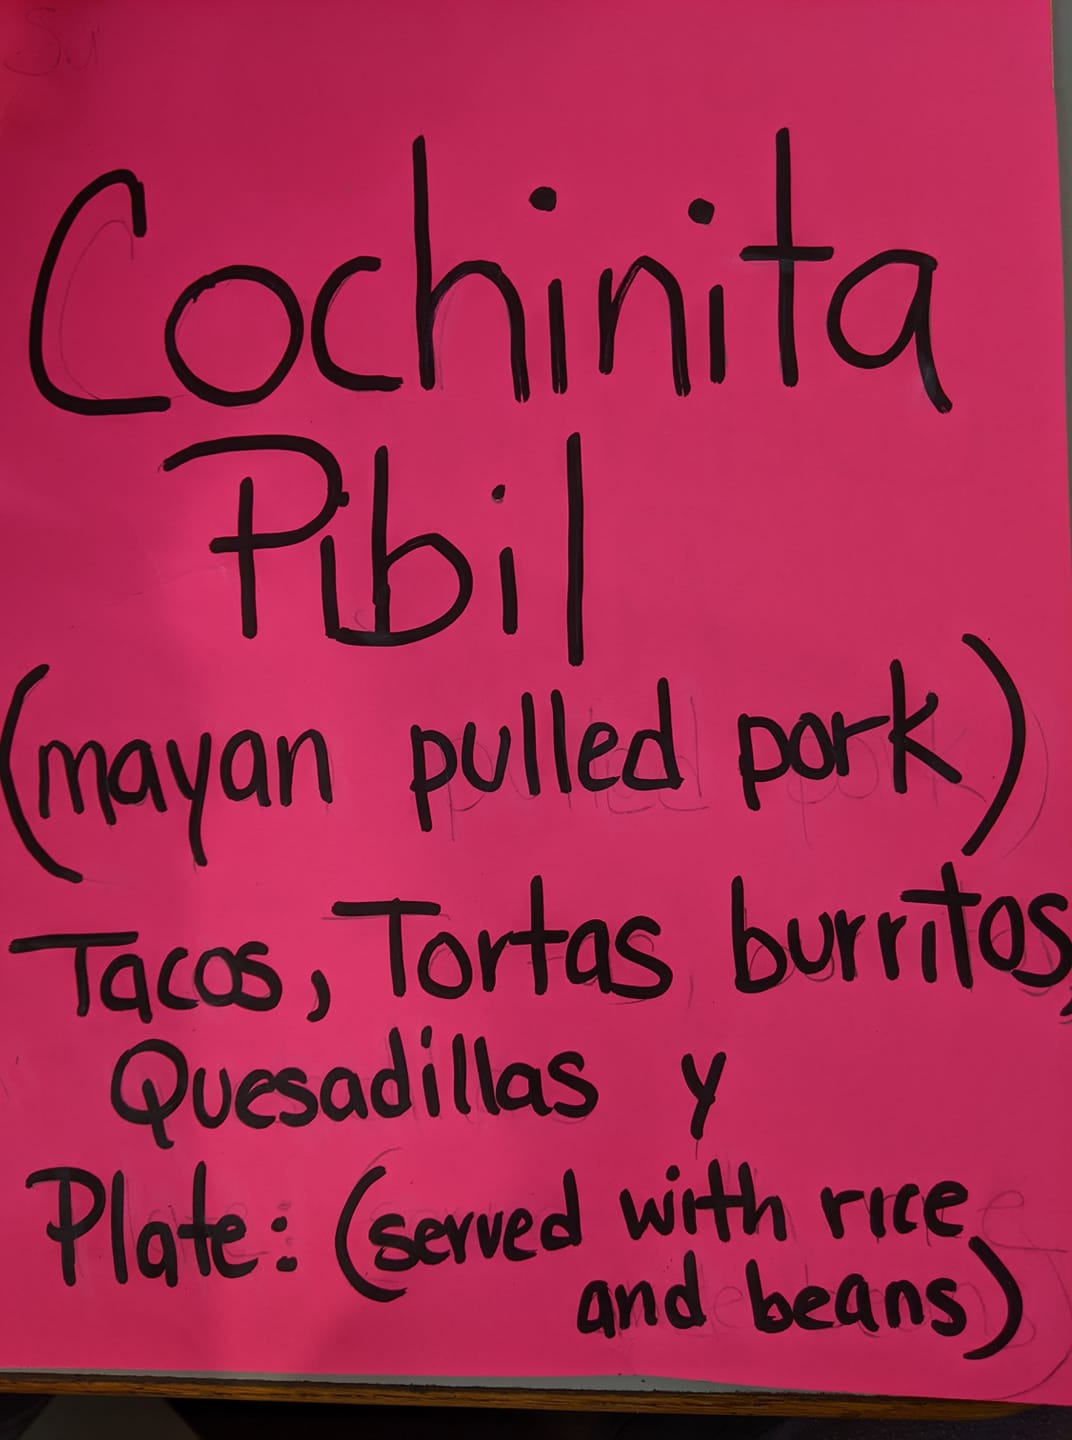 Cochinita
Pibil
(mayan pulled pork)
Tacos, Tortas burritos,
Quesadillas y
Plate: (served with rice
and beans)